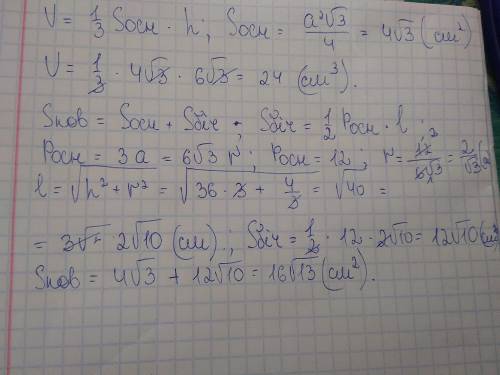 V = 1/3 Sосн · h ; Sосн = a²√3/4 = 4√3 (см²)
V = 1/3 · 4√3 · 6√3 = 24 (см³).
Sпов = Sосн + Sбіч ; Sбіч = 1/2 Pосн · l ;
Pосн = 3a = 6√3 r ; Pосн = 12 ; r = 12/6√3 = 2/√3
l = √h² + r² = √36 · 3 + 4/3 = √40 =
= 2√10 (см) ; Sбіч = 1/2 · 12 · 2√10 = 12√10 (см²)
Sпов = 4√3 + 12√10 = 16√13 (см²).